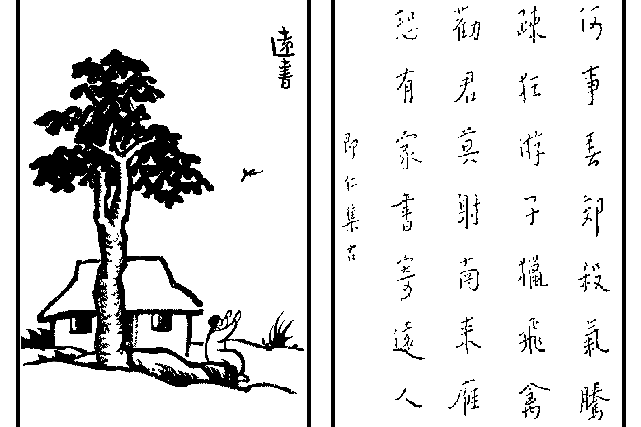 何事春郊殺氣騰
疎狂游子獵飛禽
勸君莫射南来雁
恐有家書寄遠人
即仁集古
遠書